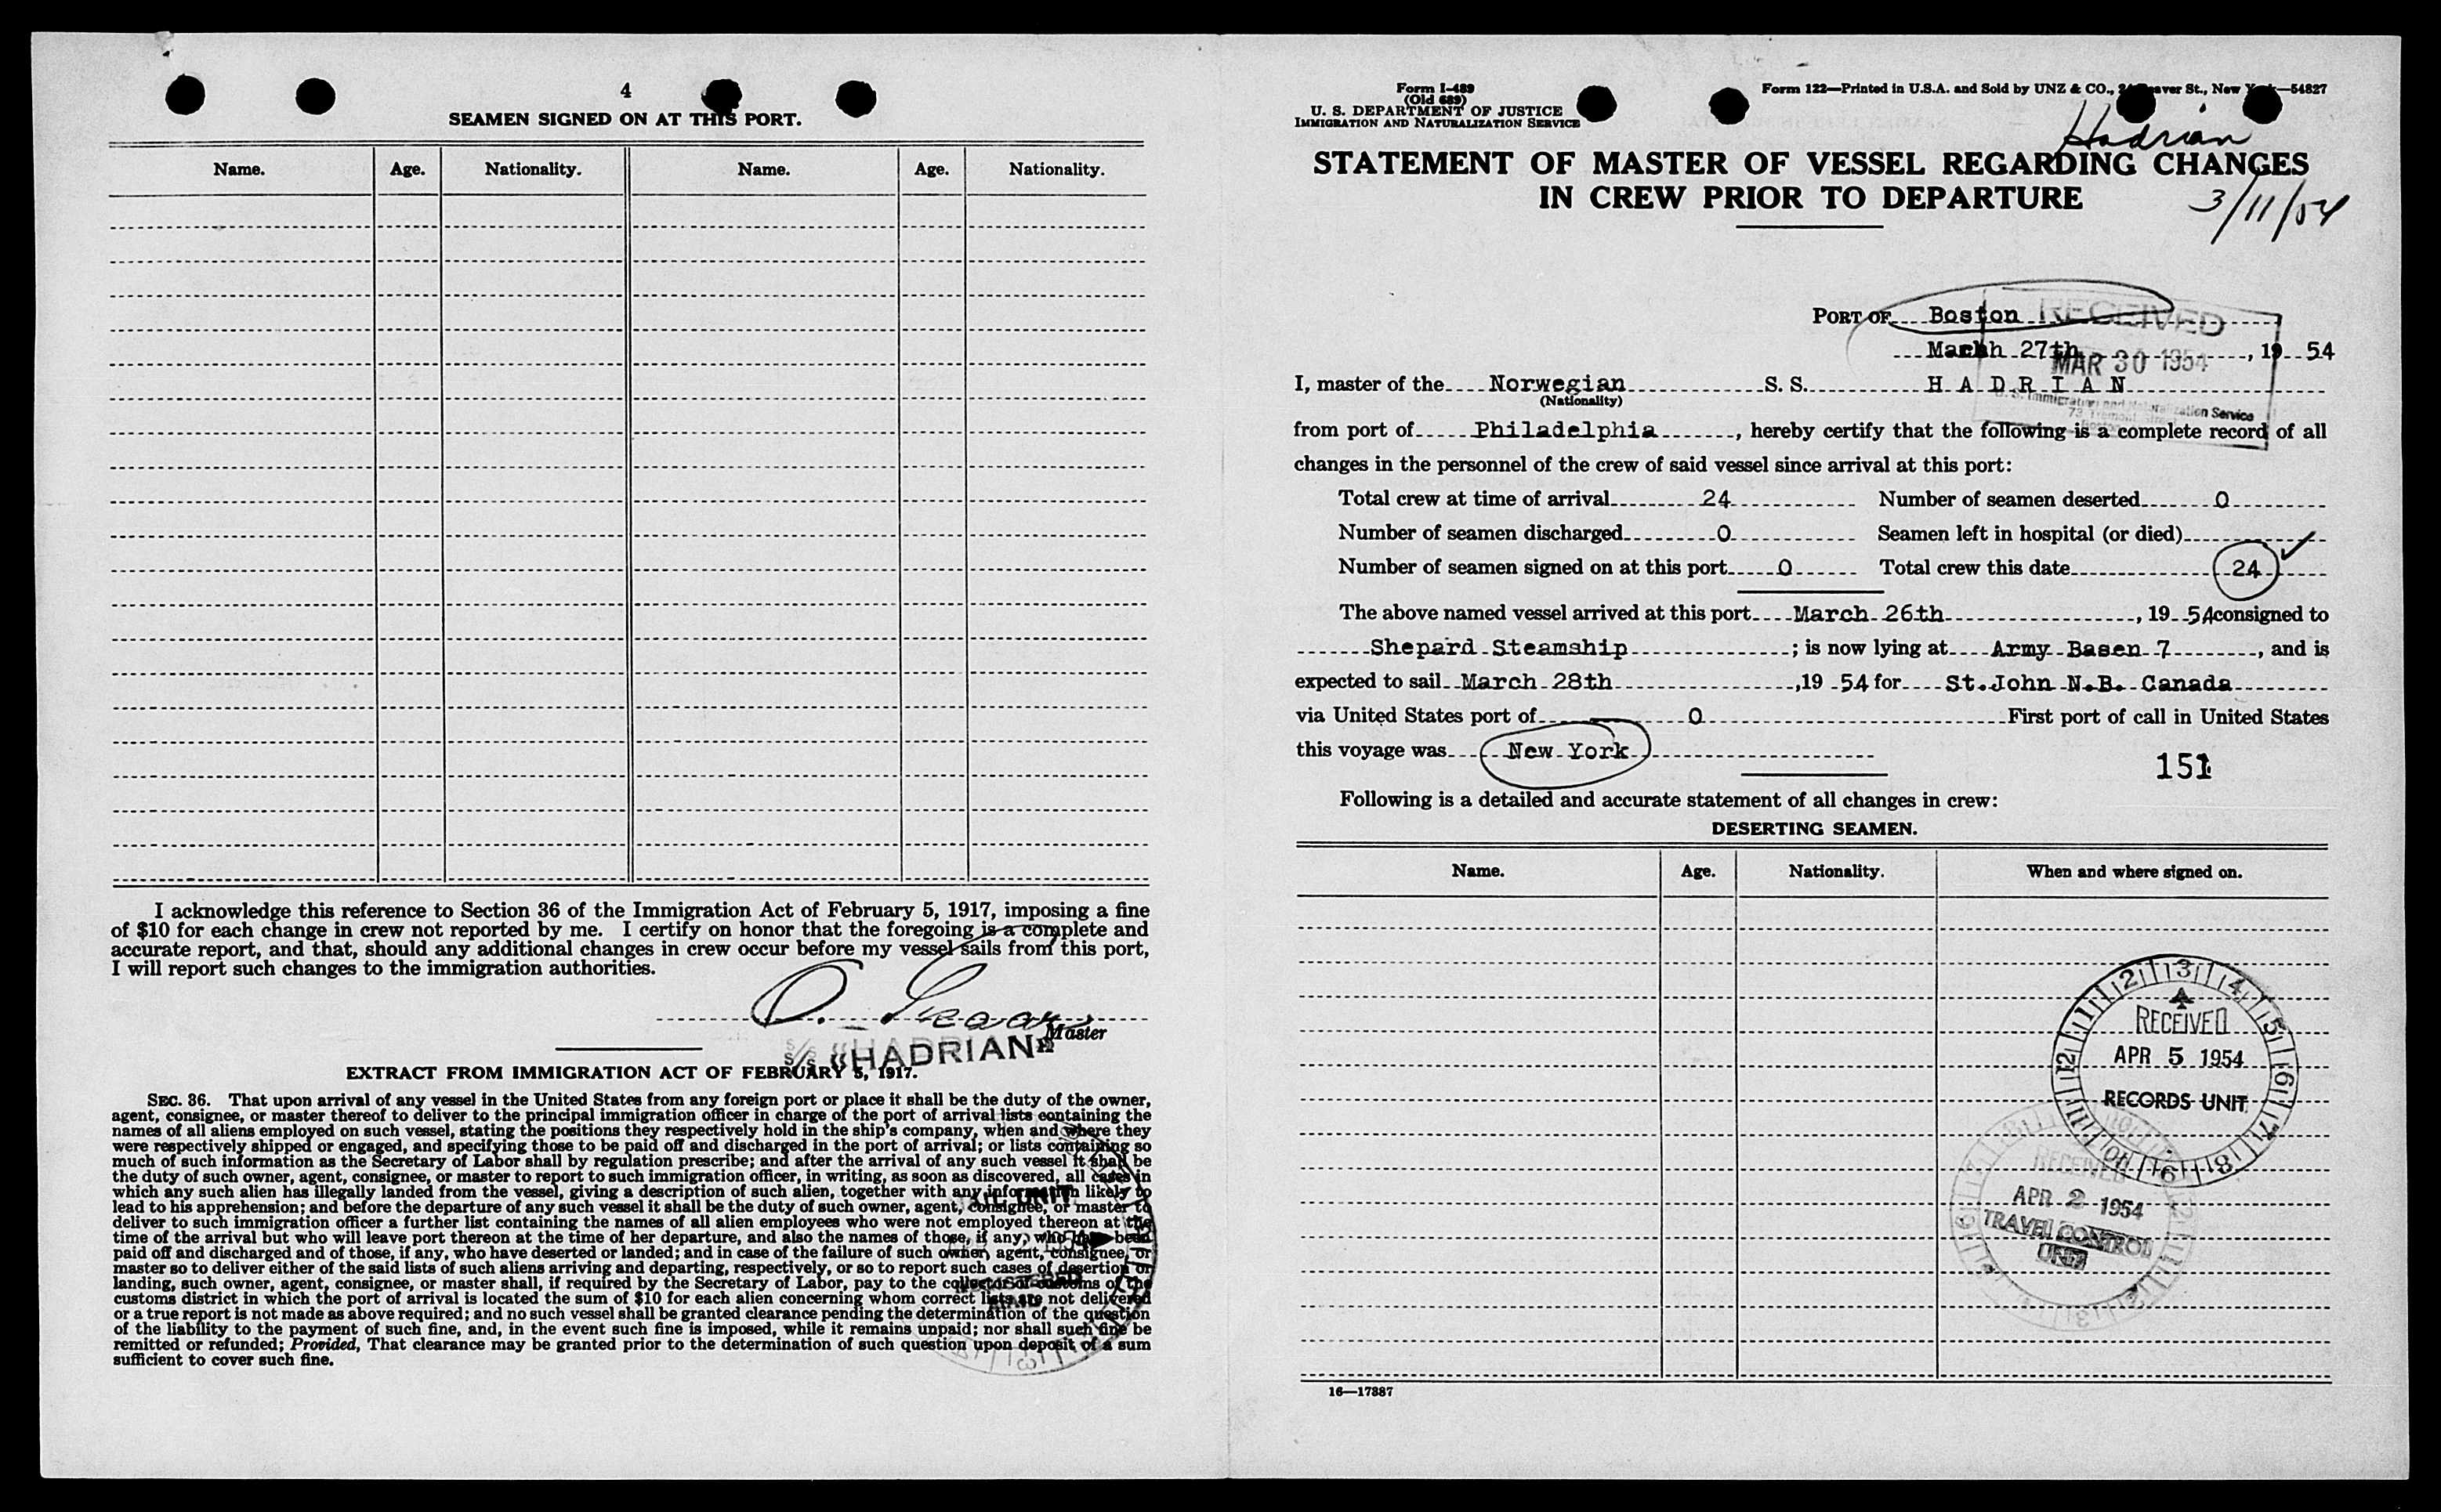 4
SEAMEN SIGNED ON AT THIS PORT.
Name. Age. Nationality. Name. Age. Nationality.
I acknowledge this reference to Section 36 of the Immigration Act of February 5, 1917, imposing a fine
of $10 for each change in crew not reported by me. I certify on honor that the foregoing is a complete and
accurate report, and that, should any additional changes in crew occur before my vessel sails from this port,
I will report such changes to the immigration authorities.
O.
Master
S/S «HADRIAN»
EXTRACT FROM IMMIGRATION ACT OF FEBRUARY 5, 1917.
SEC. 36. That upon arrival of any vessel in the United States from any foreign port or place it shall be the duty of the owner,
agent, consignee, or master thereof to deliver to the principal immigration officer in charge of the port of arrival lists containing the
names of all aliens employed on such vessel, stating the positions they respectively hold in the ship's company, when and where they
were respectively shipped or engaged, and specifying those to be paid off and discharged in the port of arrival; or lists containing so
much of such information as the Secretary of Labor shall by regulation prescribe; and after the arrival of any such vessel it shall be
the duty of such owner, agent, consignee, or master to report to such immigration officer, in writing, as soon as discovered, all cases in
which any such alien has illegally landed from the vessel, giving a description of such alien, together with any information likely to
lead to his apprehension; and before the departure of any such vessel it shall be the duty of such owner, agent, consignee, or master to
deliver to such immigration officer a further list containing the names of all alien employees who were not employed thereon at the
time of the arrival but who will leave port thereon at the time of her departure, and also the names of those, if any, who have been
paid off and discharged and of those, if any, who have deserted or landed; and in case of the failure of such owner, agent, consignee, or
master so to deliver either of the said lists of such aliens arriving and departing, respectively, or so to report such cases of desertion or
landing, such owner, agent, consignee, or master shall, if required by the Secretary of Labor, pay to the collector of customs of the
customs district in which the port of arrival is located the sum of $10 for each alien concerning whom correct lists are not delivered
or a true report is not made as above required; and no such vessel shall be granted clearance pending the determination of the question
of the liability to the payment of such fine, and, in the event such fine is imposed, while it remains unpaid; nor shall such fine be
remitted or refunded; Provided, That clearance may be granted prior to the determination of such question upon deposit of a sum
sufficient to cover such fine.
Form I-489
(Old 689)
U. S. DEPARTMENT OF JUSTICE
IMMIGRATION AND NATURALIZATION SERVICE
Form 122—Printed in U.S.A. and Sold by UNZ & CO., St., New —54827
Hadrian
STATEMENT OF MASTER OF VESSEL REGARDING CHANGES
IN CREW PRIOR TO DEPARTURE
3/11/54
PORT OF Boston
RECEIVED
March 27th, 19 54
MAR 30 1954
I, master of the Norwegian S. S. H A D R I A N
(Nationality)
U. S. Immigration and Naturalization Service
from port of Philadelphia, hereby certify that the following is a complete record of all
changes in the personnel of the crew of said vessel since arrival at this port:
Total crew at time of arrival 24 Number of seamen deserted 0
Number of seamen discharged 0 Seamen left in hospital (or died)
Number of seamen signed on at this port 0 Total crew this date 24
The above named vessel arrived at this port March 26th, 19 54 consigned to
Shepard Steamship; is now lying at Army Basen 7, and is
expected to sail March 28th, 19 54 for St.John N.B. Canada
via United States port of 0 First port of call in United States
this voyage was New York
151
Following is a detailed and accurate statement of all changes in crew:
DESERTING SEAMEN.
Name. Age. Nationality. When and where signed on.
RECEIVED
APR 5 1954
RECORDS UNIT
RECEIVED
APR 2 1954
TRAVEL CONTROL
UNIT
16—17887